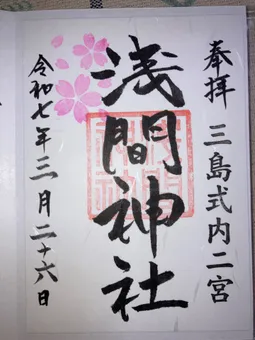 奉拝 三島式内二宮
浅間神社
令和七年三月二十六日